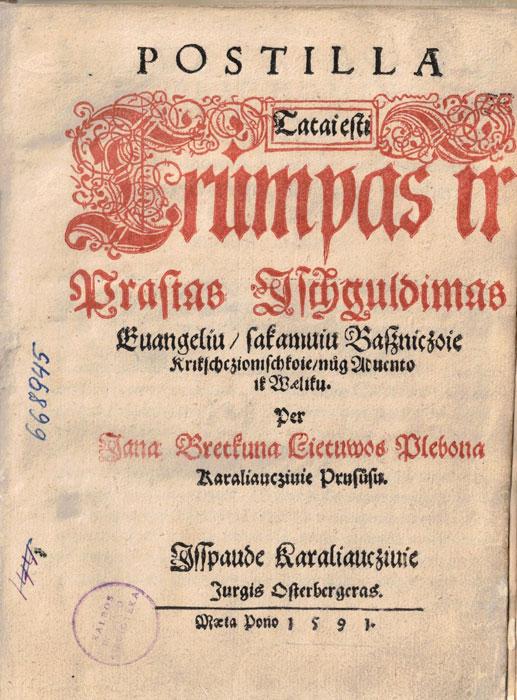 POSTILLA
Tatai esti
Trůmpas ir
Prastas Ischguldimas
Euangeliu / sakamuiu Baszniczoie
Krikschczionischkoie / nůg Aduento
ik Wæliku.
Per
Jana Bretkuna Lietuwos Plebona
Karaliaucziuie Prusůsu.
Isspaude Karaliaucziuie
Jurgis Osterbergeras.
Mæta Pono 1591.
668945
144